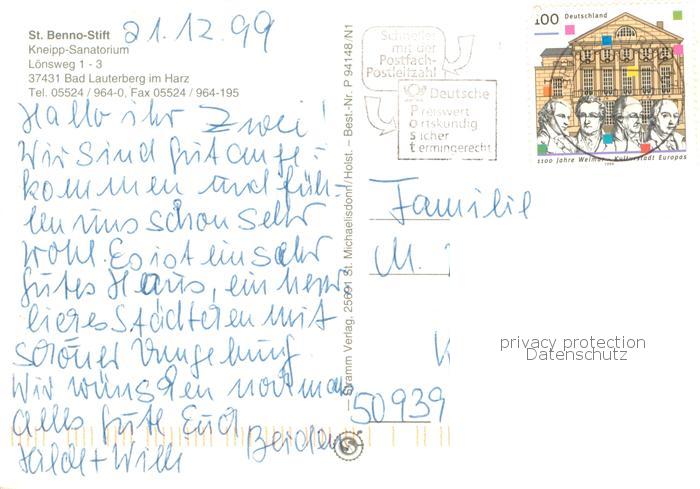 St. Benno-Stift
Kneipp-Sanatorium
Lönsweg 1 - 3
37431 Bad Lauterberg im Harz
Tel. 05524 / 964-0, Fax 05524 / 964-195
21.12.99
Hallo ihr Zwei!
Wir sind gut ange-
kommen und füh-
len uns schon sehr
wohl. Es ist ein sehr
gutes Haus, ein herr
liches Städtchen mit
schöner Umgebung.
Wir wünschen nochmals
alles gute Euch
Beiden
Hilde + Willi
Stramm Verlag, 25691 St. Michaelisdonn/Holst. – Best.-Nr. P 94148/N1
Schneller
mit der
Postfach-
Postleitzahl
Deutsche
Preiswert
Ortskundig
Sicher
termingerecht
100 Deutschland
1100 Jahre Weimar - Kulturstadt Europas
1999
Familie
M.
50939
privacy protection
Datenschutz